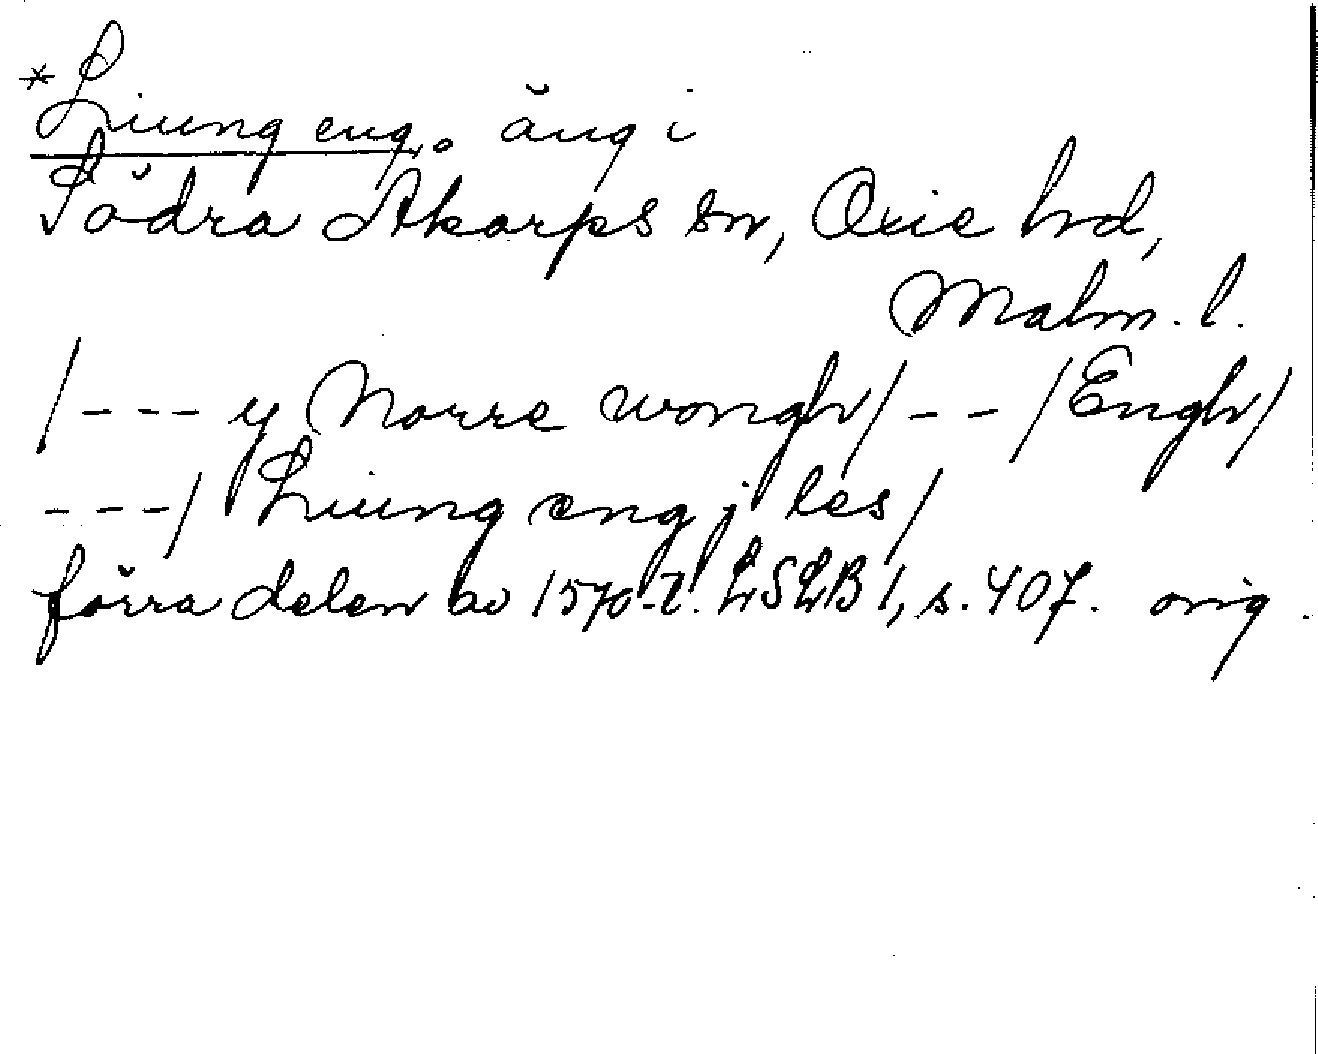 *Liung eng. äng i
Södra Åkarps sn, Oxie hd,
Malm. l.
/--- y Norre wongh/ -- /Engh/
---/ Liung eng j les/
förra delen av 1570-t. LSLB 1, s. 407. orig.